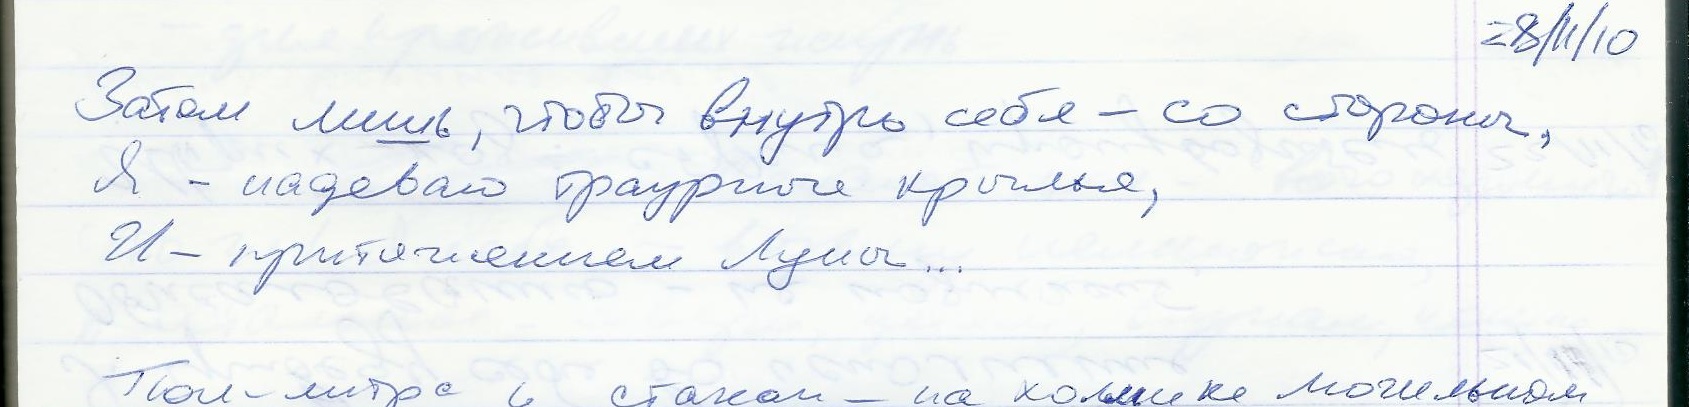 28/11/10
Затем лишь, чтобы внутрь себя – со стороны,
Я – надеваю траурные крылья,
И – притяжением Луны...
Пол-литра и стакан – на холмике могильном